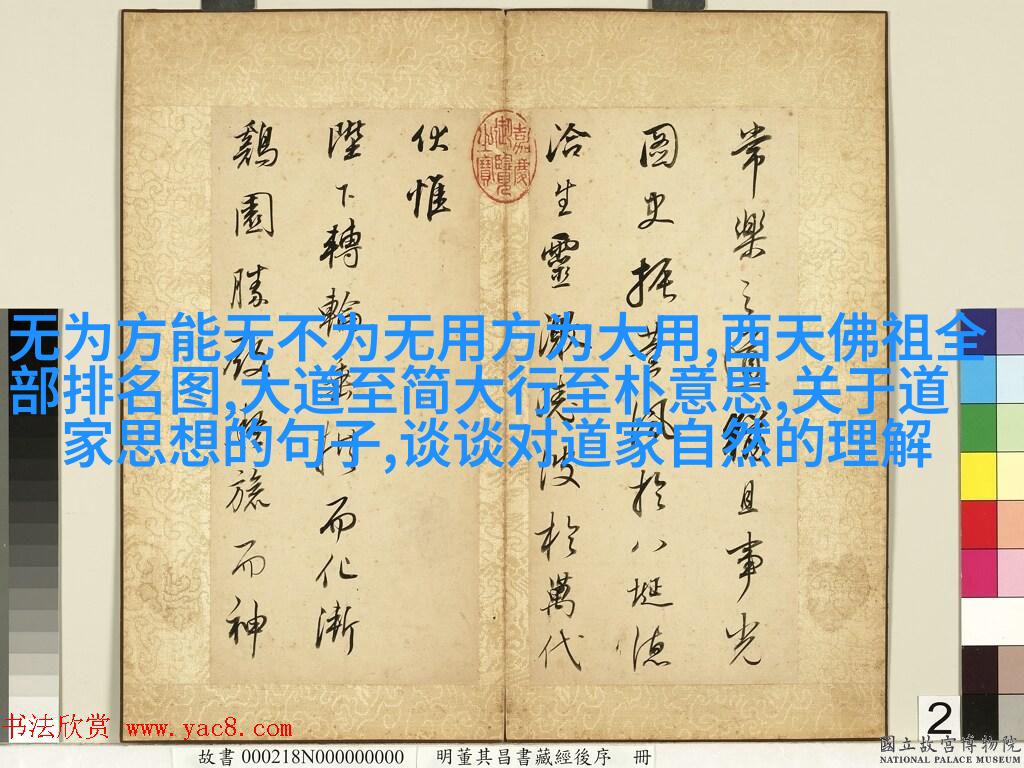 常樂之職且事光
圖史振英風於八埏德
洽生靈激堯波於萬代
嘉慶御覽之寶
伏惟
陛下轉輪垂拱而化漸
鷄園勝殿凝旒而神
无为方能无不为无用方为大用,西天佛祖全
部排名图,大道至简大行至朴意思,关于道
家思想的句子,谈谈对道家自然的理解
2
书法欣赏 www.yac8.com
故書 000218N000000000 明董其昌書藏經後序 冊
國立故宮博物院
NATIONAL PALACE MUSEUM